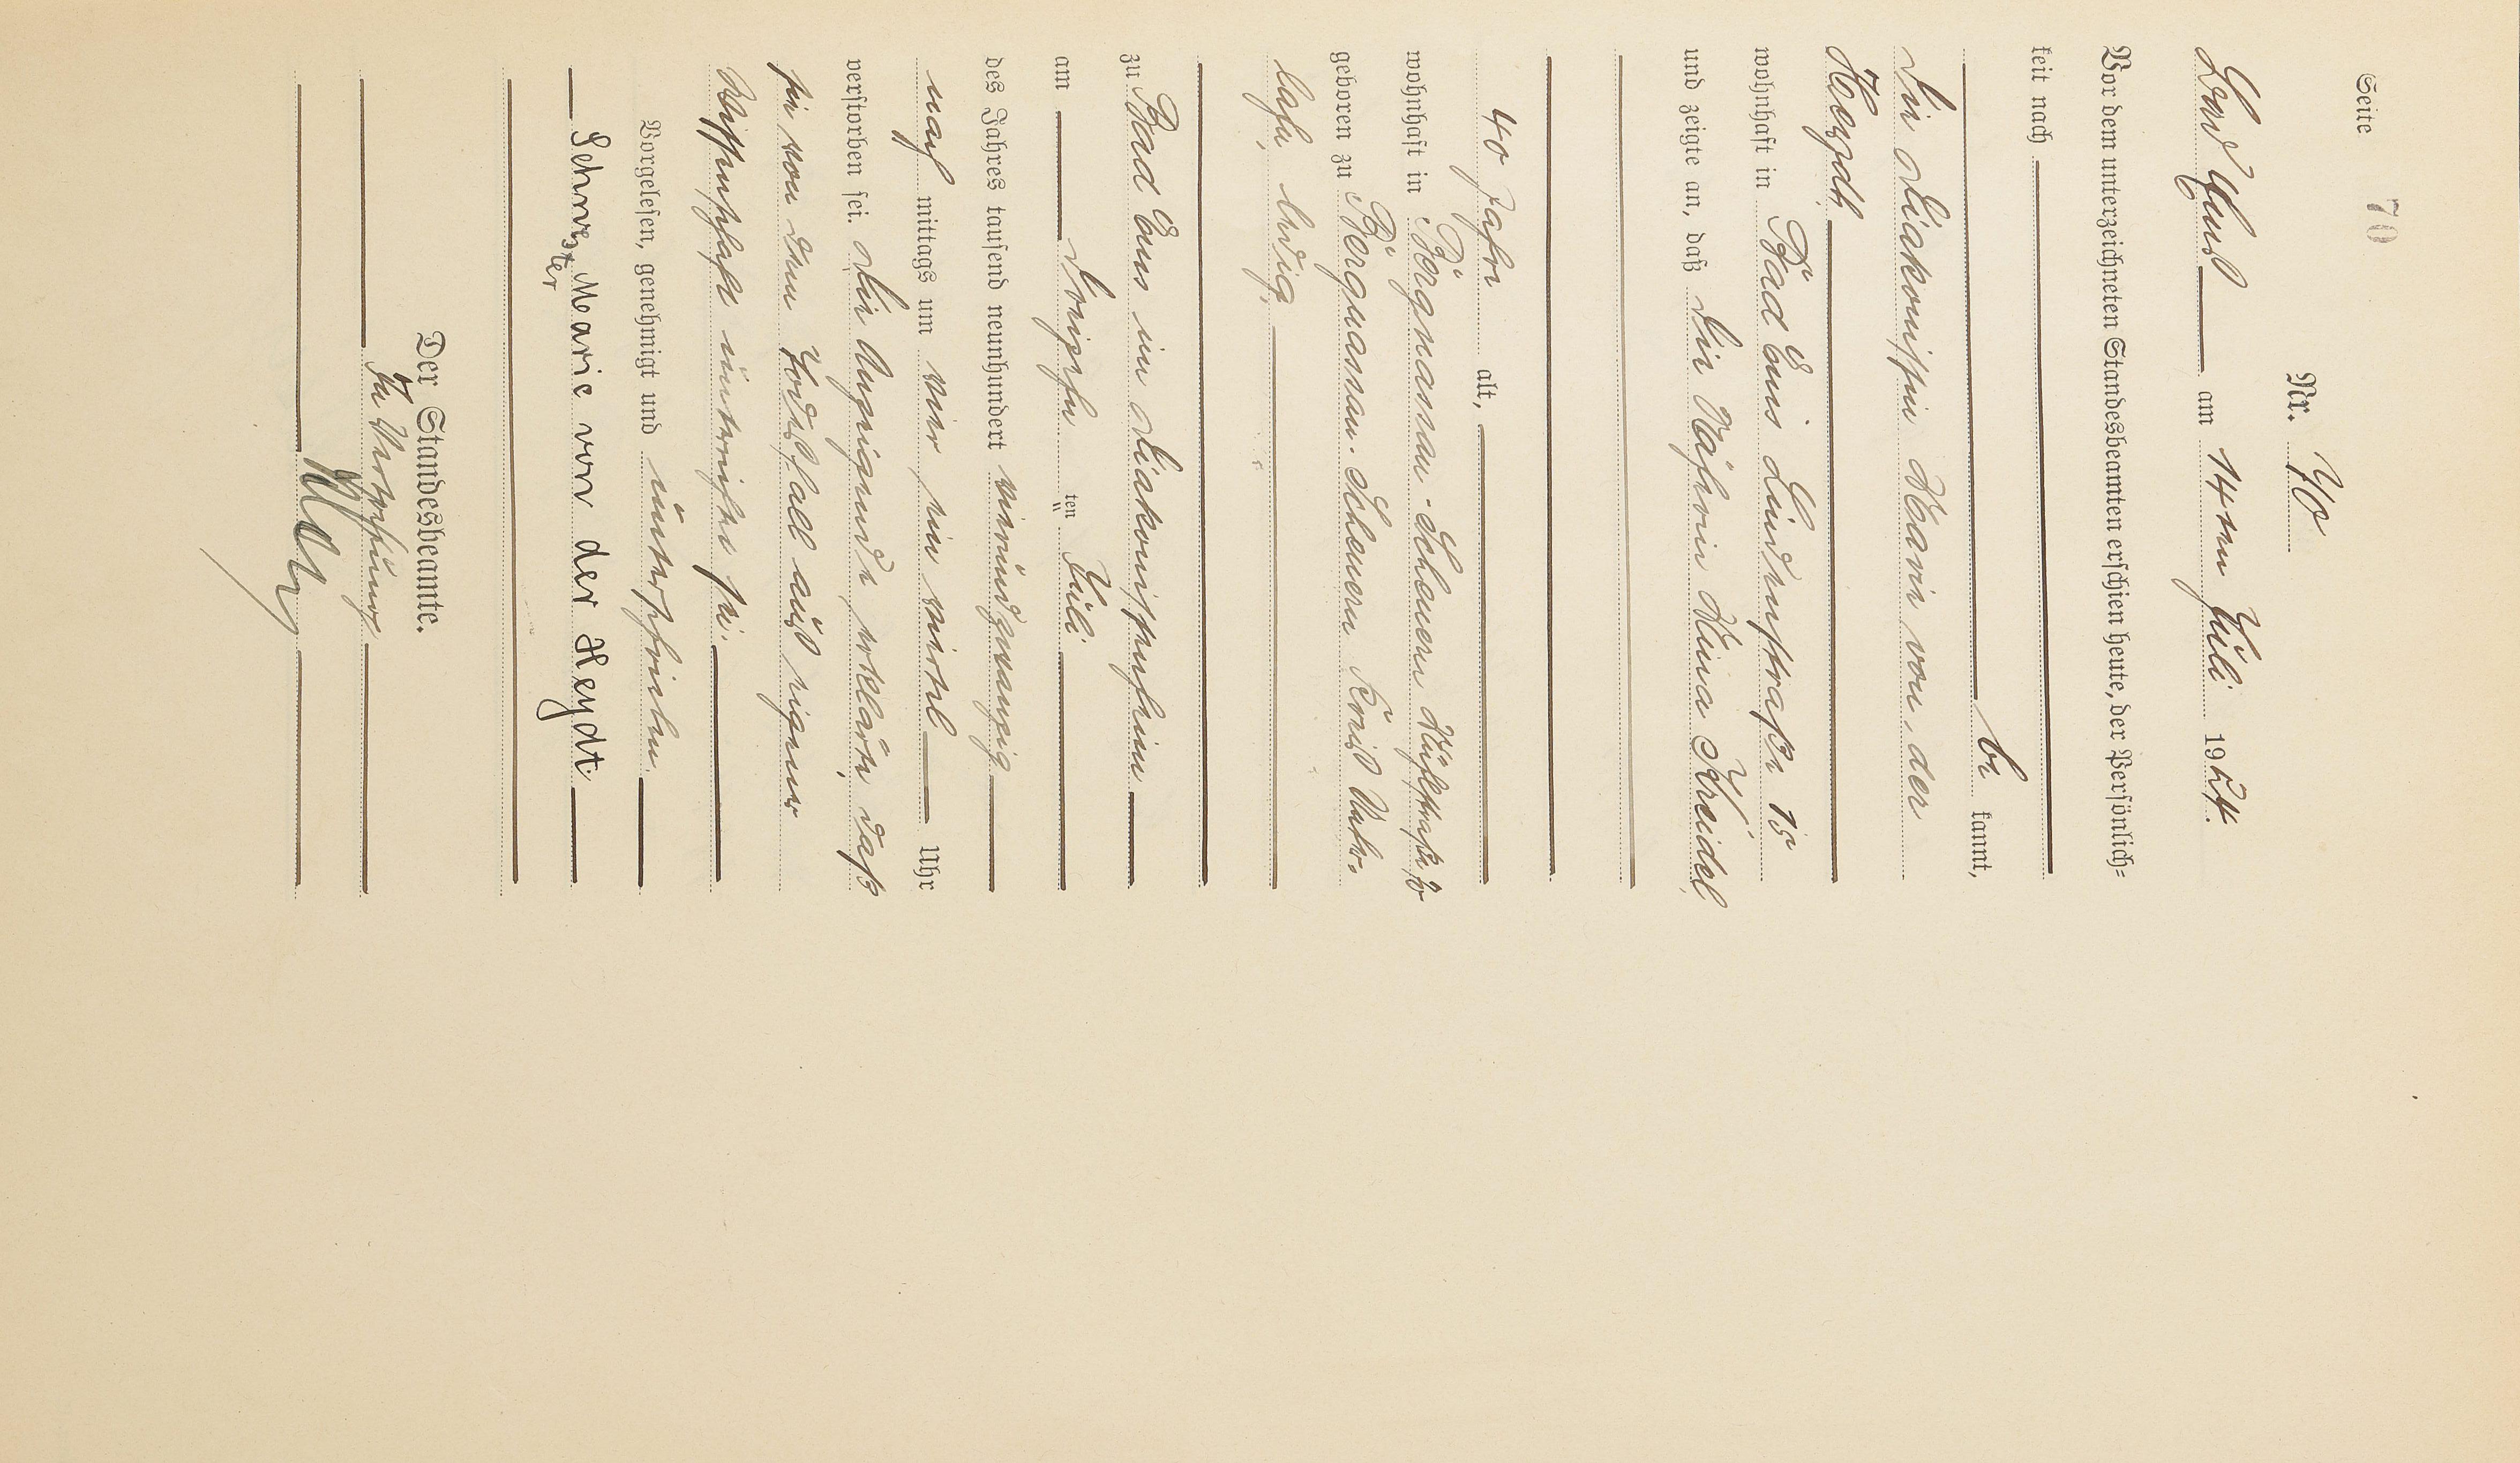 Seite 70
Nr. 70
Bad Ems am 14ten Juli 1924.
Vor dem unterzeichneten Standesbeamten erschien heute, der Persönlich-
keit nach
be kannt,
die Diakonissin Marie von der
Heydt,
wohnhaft in Bad Ems Lindenstraße 15
und zeigte an, daß die Näherin Mina Kreidel,
40 Jahre alt,
wohnhaft in Bergnassau-Scheuern
geboren zu Bergnassau-Scheuern Kreis Unter-
lahn, ledig,
zu Bad Ems im Diakonissenheim
am dreizehn ten Juli
des Jahres tausend neunhundert vierundzwanzig
nach mittags um vier ein viertel Uhr
verstorben sei. Die Anzeigende erklärte, daß
sie von dem Todesfall aus eigener
Wissenschaft unterrichtet sei.
Vorgelesen, genehmigt und unterschrieben.
Schwester Marie von der Heydt.
Der Standesbeamte.
In Vertretung